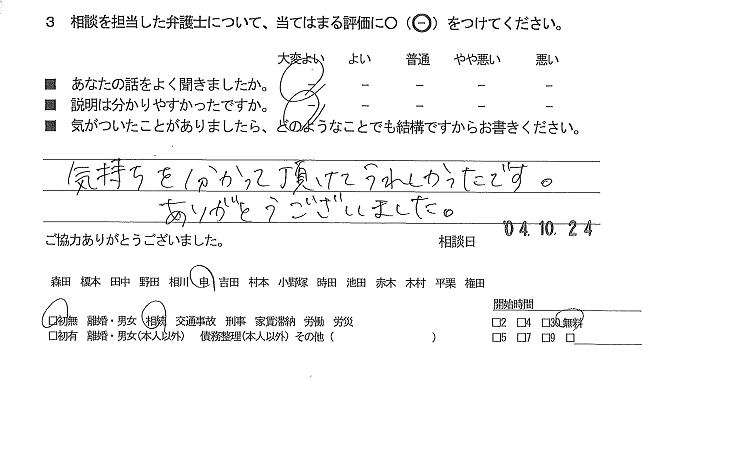 3 相談を担当した弁護士について、当てはまる評価に○(⊖)をつけてください。
大変よい よい 普通 やや悪い 悪い
■ あなたの話をよく聞きましたか。 － － － － －
■ 説明は分かりやすかったですか。 － － － － －
■ 気がついたことがありましたら、どのようなことでも結構ですからお書きください。
気持ちを分かって頂けてうれしかったです。
ありがとうございしました。
ご協力ありがとうございました。 相談日 '04.10.24
森田 榎本 田中 野田 相川 申 吉田 村本 小野塚 時田 池田 赤木 木村 平栗 権田
開始時間
□初無 離婚・男女 相続 交通事故 刑事 家賃滞納 労働 労災 □2 □4 □30 無料
□初有 離婚・男女(本人以外) 債務整理(本人以外) その他( ) □5 □7 □9 □